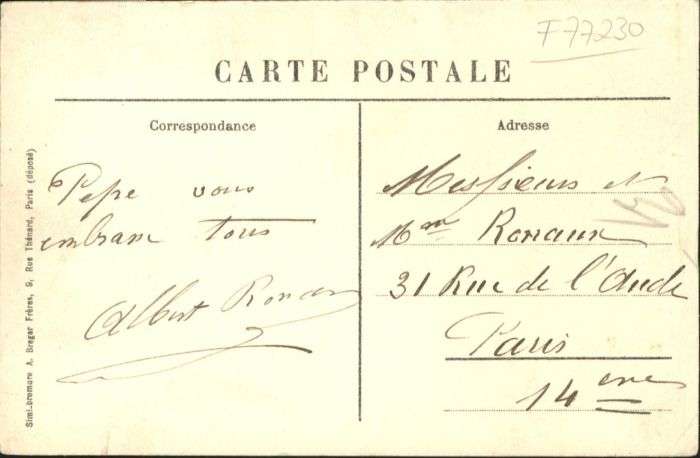 F77230
CARTE POSTALE
Correspondance
Adresse
Pepe vous
embrasse tous
Albert Ronaux
Messieurs et
Mme Ronaux
31 Rue de l'Aude
Paris
14 eme
Simi-bromure A. Breger Frères, 9, Rue Thénard, Paris (déposé)